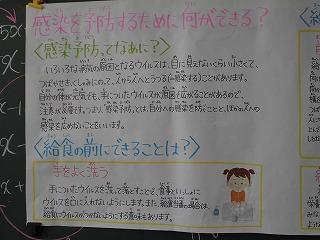 感染を予防するために何ができる？
〈感染予防、てなあに？〉
いろいろな病気の原因となるウイルスは、目に見えないくらい小さくて、
つばやせき、くしゃみにのって、人から人へとうつる(=感染する)ことがあります。
自分の体が元気でも、手についたウイルスが原因で広がることがあるので、
注意が必要です。つまり、感染予防とは、自分への感染を防ぐことと、ほかの人への
感染を広めないことをいいます。
〈給食の前にできることは？〉
手をよく洗う
手についたウイルスを洗って落とすことで、食事といっしょに
ウイルスを口に入れないようにします。また、給食当番の場合は、
給食にウイルスがつかないようにする意味もあります。